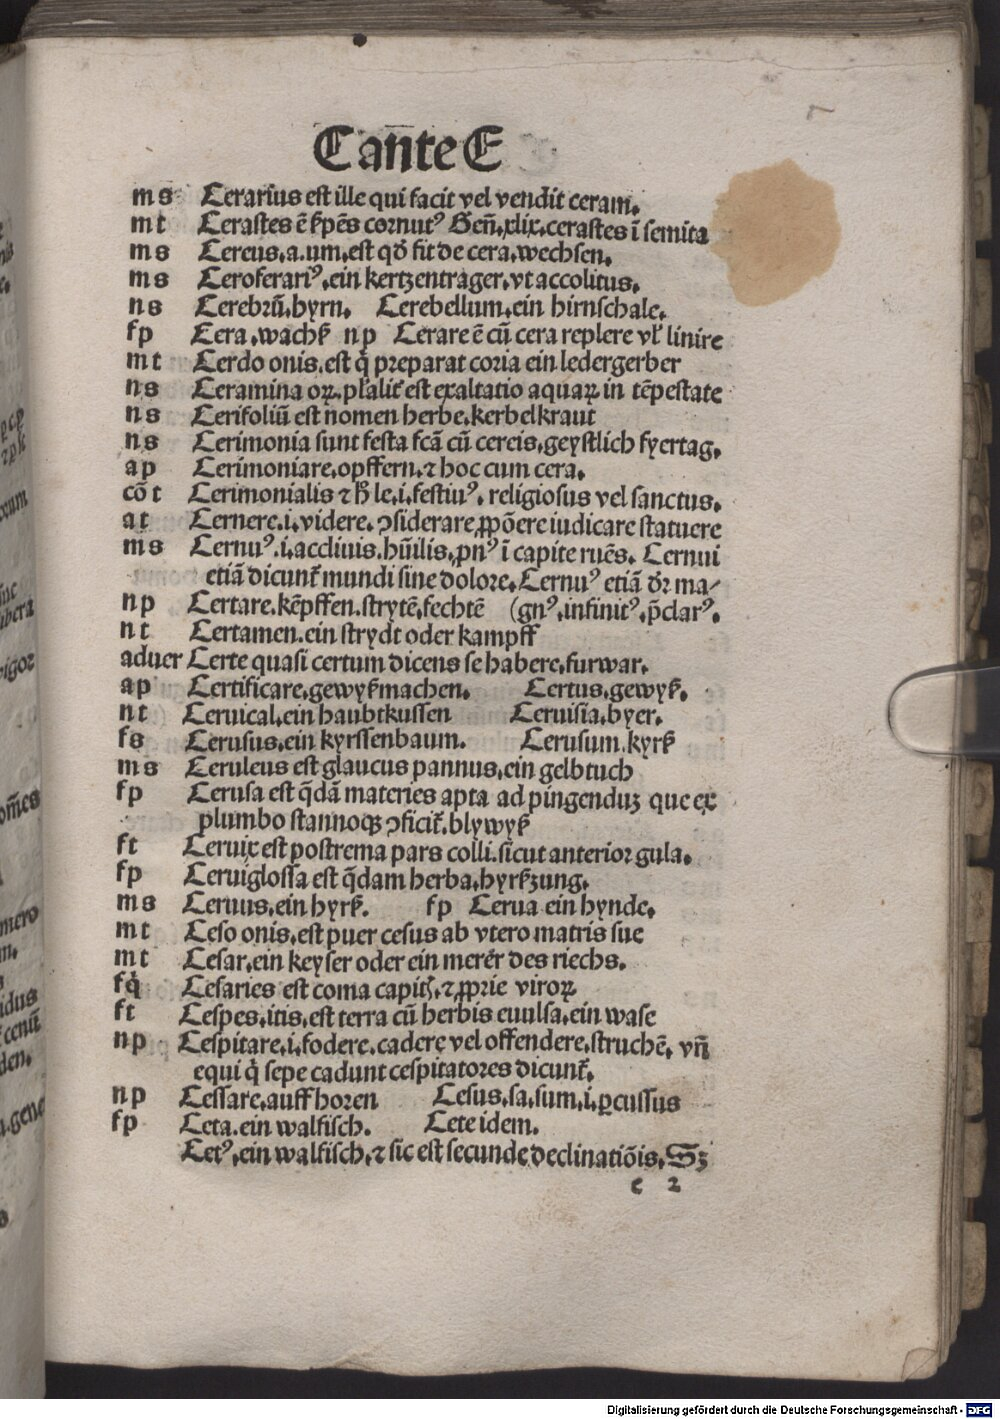 C an̄te E
m s Cerarius est ille qui facit vel vendit ceram.
m t Cerastes ē s̄pēs cornutꝰ Gen̄.xlix.cerastes ī semita
m s Cereus.a.um.est qd̄ fit de cera.wechsen.
m s Ceroferariꝰ.ein kertzentrager.vt accolitus.
n s Cerebrū.hyrn. Cerebellum.ein hirnschale.
f p Cera.wachß n p Cerare ē cū cera replere vl̄ linire
m t Cerdo onis.est q̄ preparat coria ein ledergerber
n s Ceramina oꝝ.pl̄alit̄ est exaltatio aquaꝝ in tēpestate
n s Cerifoliū est nomen herbe.kerbelkraut
n s Cerimonia sunt festa fcā cū cereis.geystlich fyertag.
a p Cerimoniare.opffern.⁊ hoc cum cera.
cō t Cerimonialis ⁊ h̄ le.i.festiuꝰ. religiosus vel sanctus.
a t Cernere.i.videre.ꝯsiderare.ꝓpōere iudicare statuere
m s Cernuꝰ.i.acclivis.hūilis.pnꝰ ī capite ruēs. Cernui
etiā dicunt̄ mundi sine dolore.Cernuꝰ etiā dr̄ ma⸗
n p Certare.kēpffen.strytē.fechtē (gnꝰ.infinitꝰ.p̄clarꝰ.
n t Certamen.ein strydt oder kampff
aduer Certe quasi certum dicens se habere.furwar.
a p Certificare.gewyßmachen. Certus.gewyß.
n t Ceruical.ein haubtkussen Ceruisia.byer.
f s Cerusus.ein kyrssenbaum. Cerusum.kyrß
m s Ceruleus est glaucus pannus.ein gelb tuch
f p Cerusa est q̄dā materies apta ad pingenduꝫ que ex
plumbo stannoqꝫ ꝯficit̄.blywyß
f t Ceruix est postrema pars colli.sicut anterior gula.
f p Ceruiglossa est q̄dam herba.hyrßzung.
m s Ceruus.ein hyrß. f p Cerua ein hynde.
m t Ceso onis.est puer cesus ab vtero matris sue
m t Cesar.ein keyser oder ein merer̄ des riechs.
f q̇ Cesaries est coma capitꝭ.⁊ ꝓprie viroꝝ
f t Cespes.itis.est terra cū herbis euulsa.ein wase
n p Cespitare.i.fodere.cadere vel offendere.struchē. vn̄
equi q̇ sepe cadunt cespitatores dicunt̄.
n p Cessare.auff horen Cesus.sa.sum.i.ꝑcussus
f p Ceta.ein walfisch. Cete idem.
Cetꝰ.ein walfisch.⁊ sic est secunde declinatiōis.Sꝫ
c 2
Digitalisierung gefördert durch die Deutsche Forschungsgemeinschaft - DFG